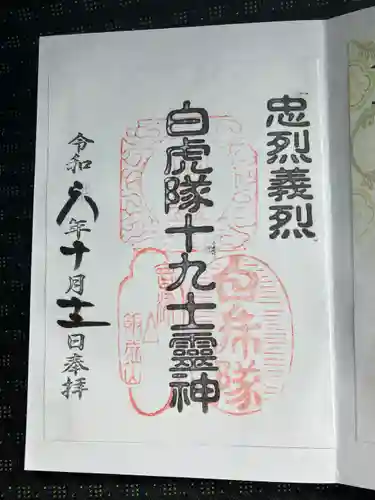 忠烈義烈
白虎隊十九士霊神
令和六年十月十二日奉拝
白虎隊
飯盛山